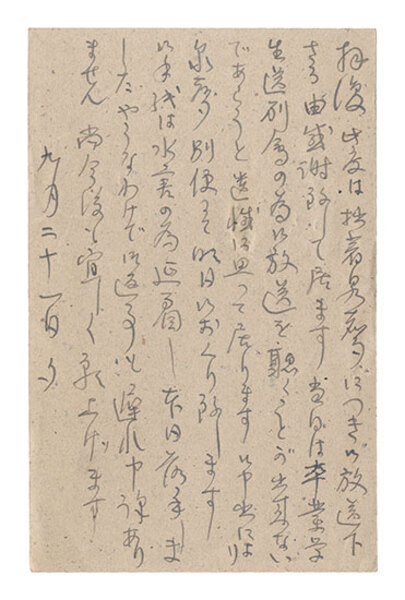 拝復 此度は拙著泉声につき御放送下
さる由感謝致して居ます 当日は卒業学
生送別会の為御放送を聴くことが出来ない
であらうと遺憾に思って居ります 御申出により
泉声 別便にて明日御おくり致します
御手紙は水害の為延着し本日落手しま
したやうなわけで御返事も遅れ申訳あり
ません 尚今後も宜しく願上げます
九月二十一日夕